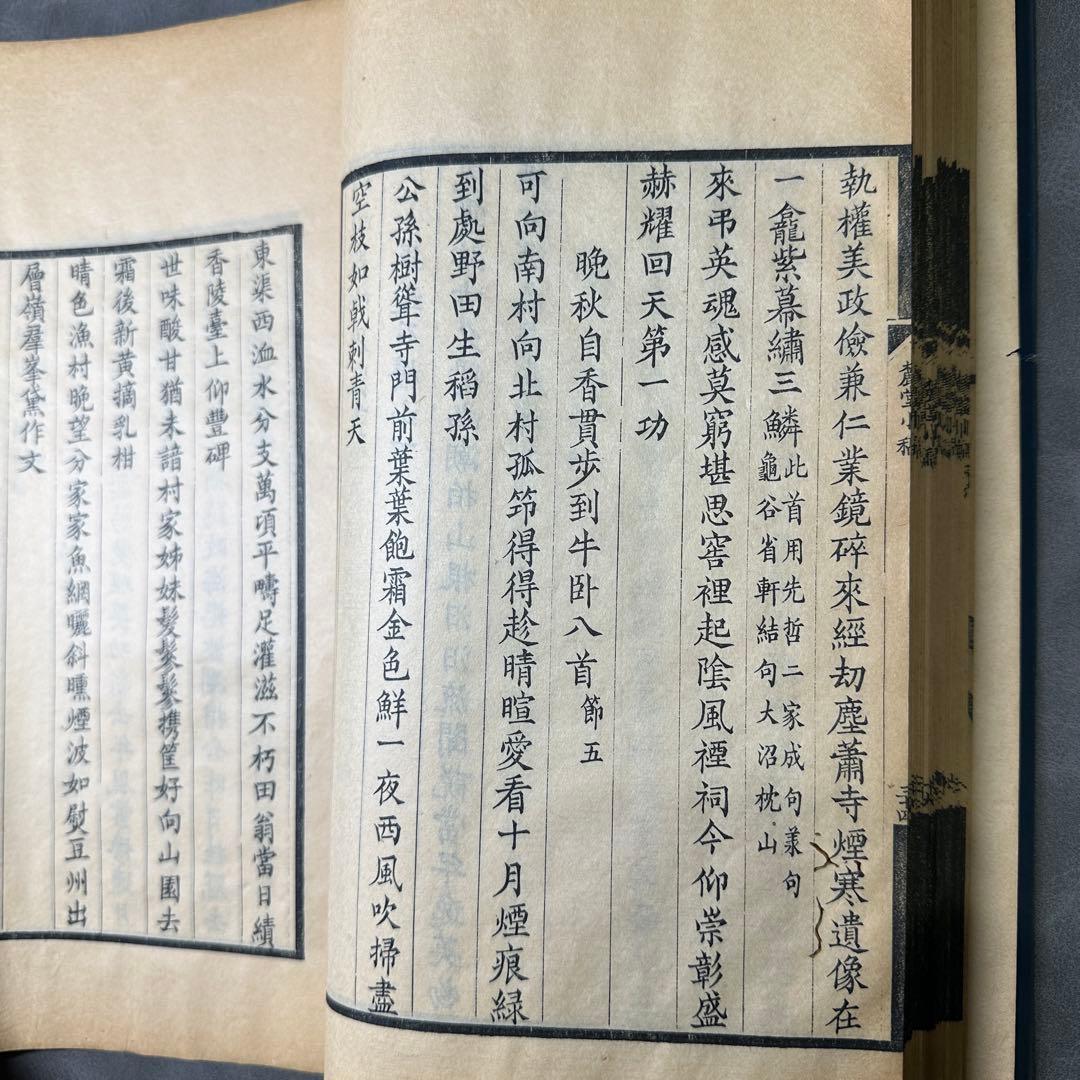 執權美政儉兼仁業鏡碎來經劫塵蕭寺煙寒遺像在
一龕紫幕繡三鱗此首用先哲二家成句羕句
龜谷省軒結句大沼枕山
來弔英魂感莫窮堪思窖裡起陰風禋祠今仰崇彰盛
赫耀回天第一功
晩秋自香貫步到牛卧八首節五
可向南村向北村孤笻得得趁晴暄愛看十月煙痕綠
到處野田生稻孫
公孫樹聳寺門前葉葉飽霜金色鮮一夜西風吹掃盡
空枝如戟刺青天
堂小稿
三十四
東渠西洫水分支萬頃平疇足灌滋不朽田翁當日績
香陵臺上仰豐碑
世味酸甘猶未諳村家姊妹髮鬖鬖携筐好向山園去
霜後新黃摘乳柑
晴色漁村晩望分家家魚網曬斜曛煙波如熨豆州出
層嶺羣峯黛作文